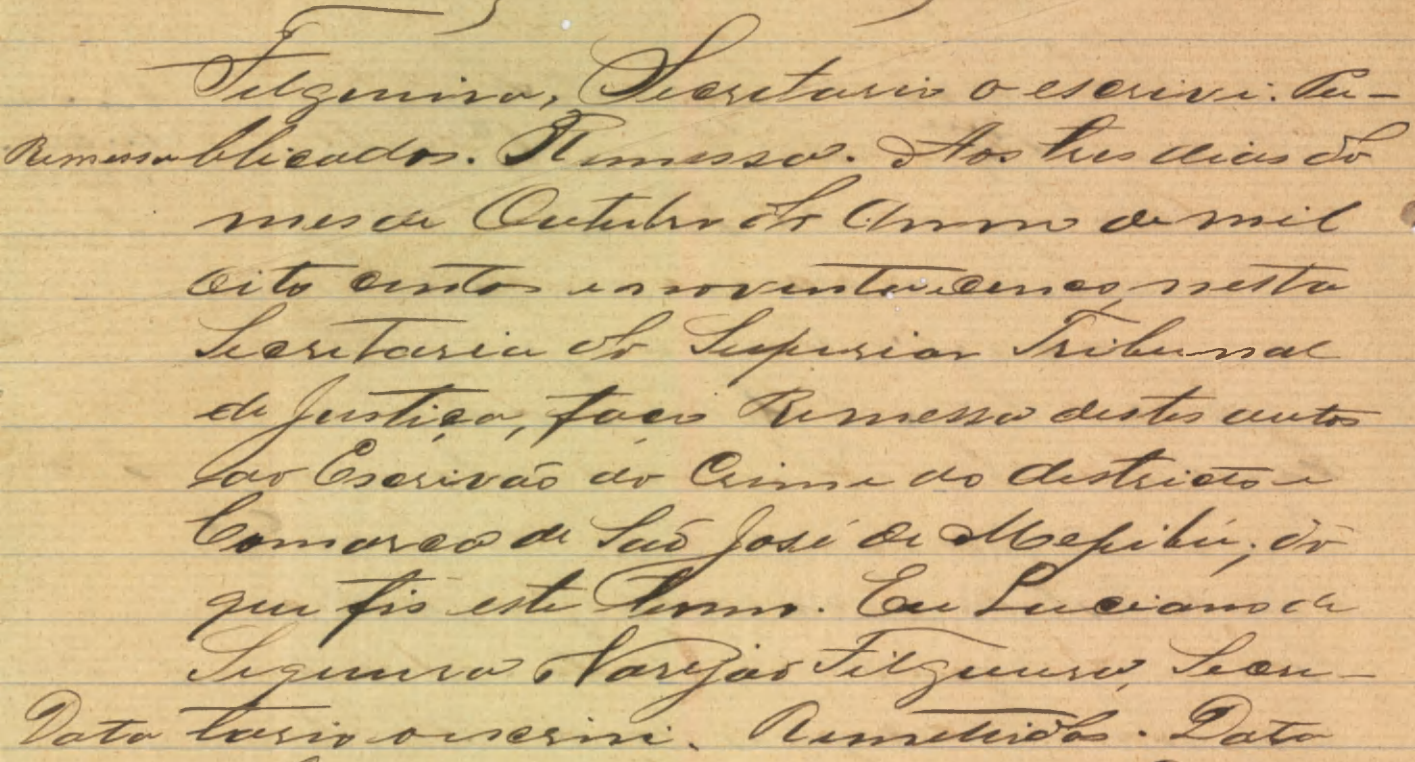 Filgueira, Secretario o escrivi. Pu-
Remessa blicados. Remessa. Aos tres dias do
mes de Outubro do Anno de mil
oito centos e noventa e cinco, nesta
Secretaria do Superior Tribunal
de Justiça, faço Remessa destes autos
ao Escrivão do Crime do districto e
Comarca de São José de Mepibú; do
que fis este termo. Eu Luciano de
Siqueira Varejão Filgueira, Secre-
Data tario o escrivi. Remettidos. Data